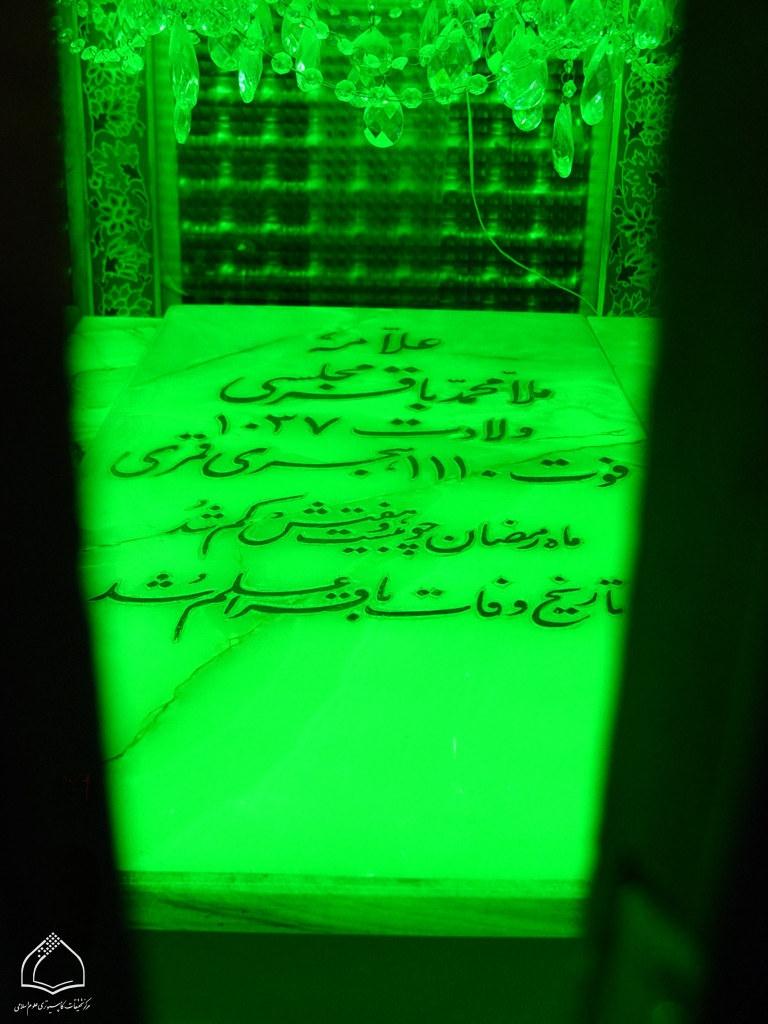 علامه
ملا محمد باقر مجلسی
ولادت ۱۰۳۷
فوت ۱۱۱۰ هجری قمری
ماه رمضان چو بیست و هفتش کم شد
تاریخ وفات باقر اعلم شد
مرکز تحقیقات کامپیوتری علوم اسلامی